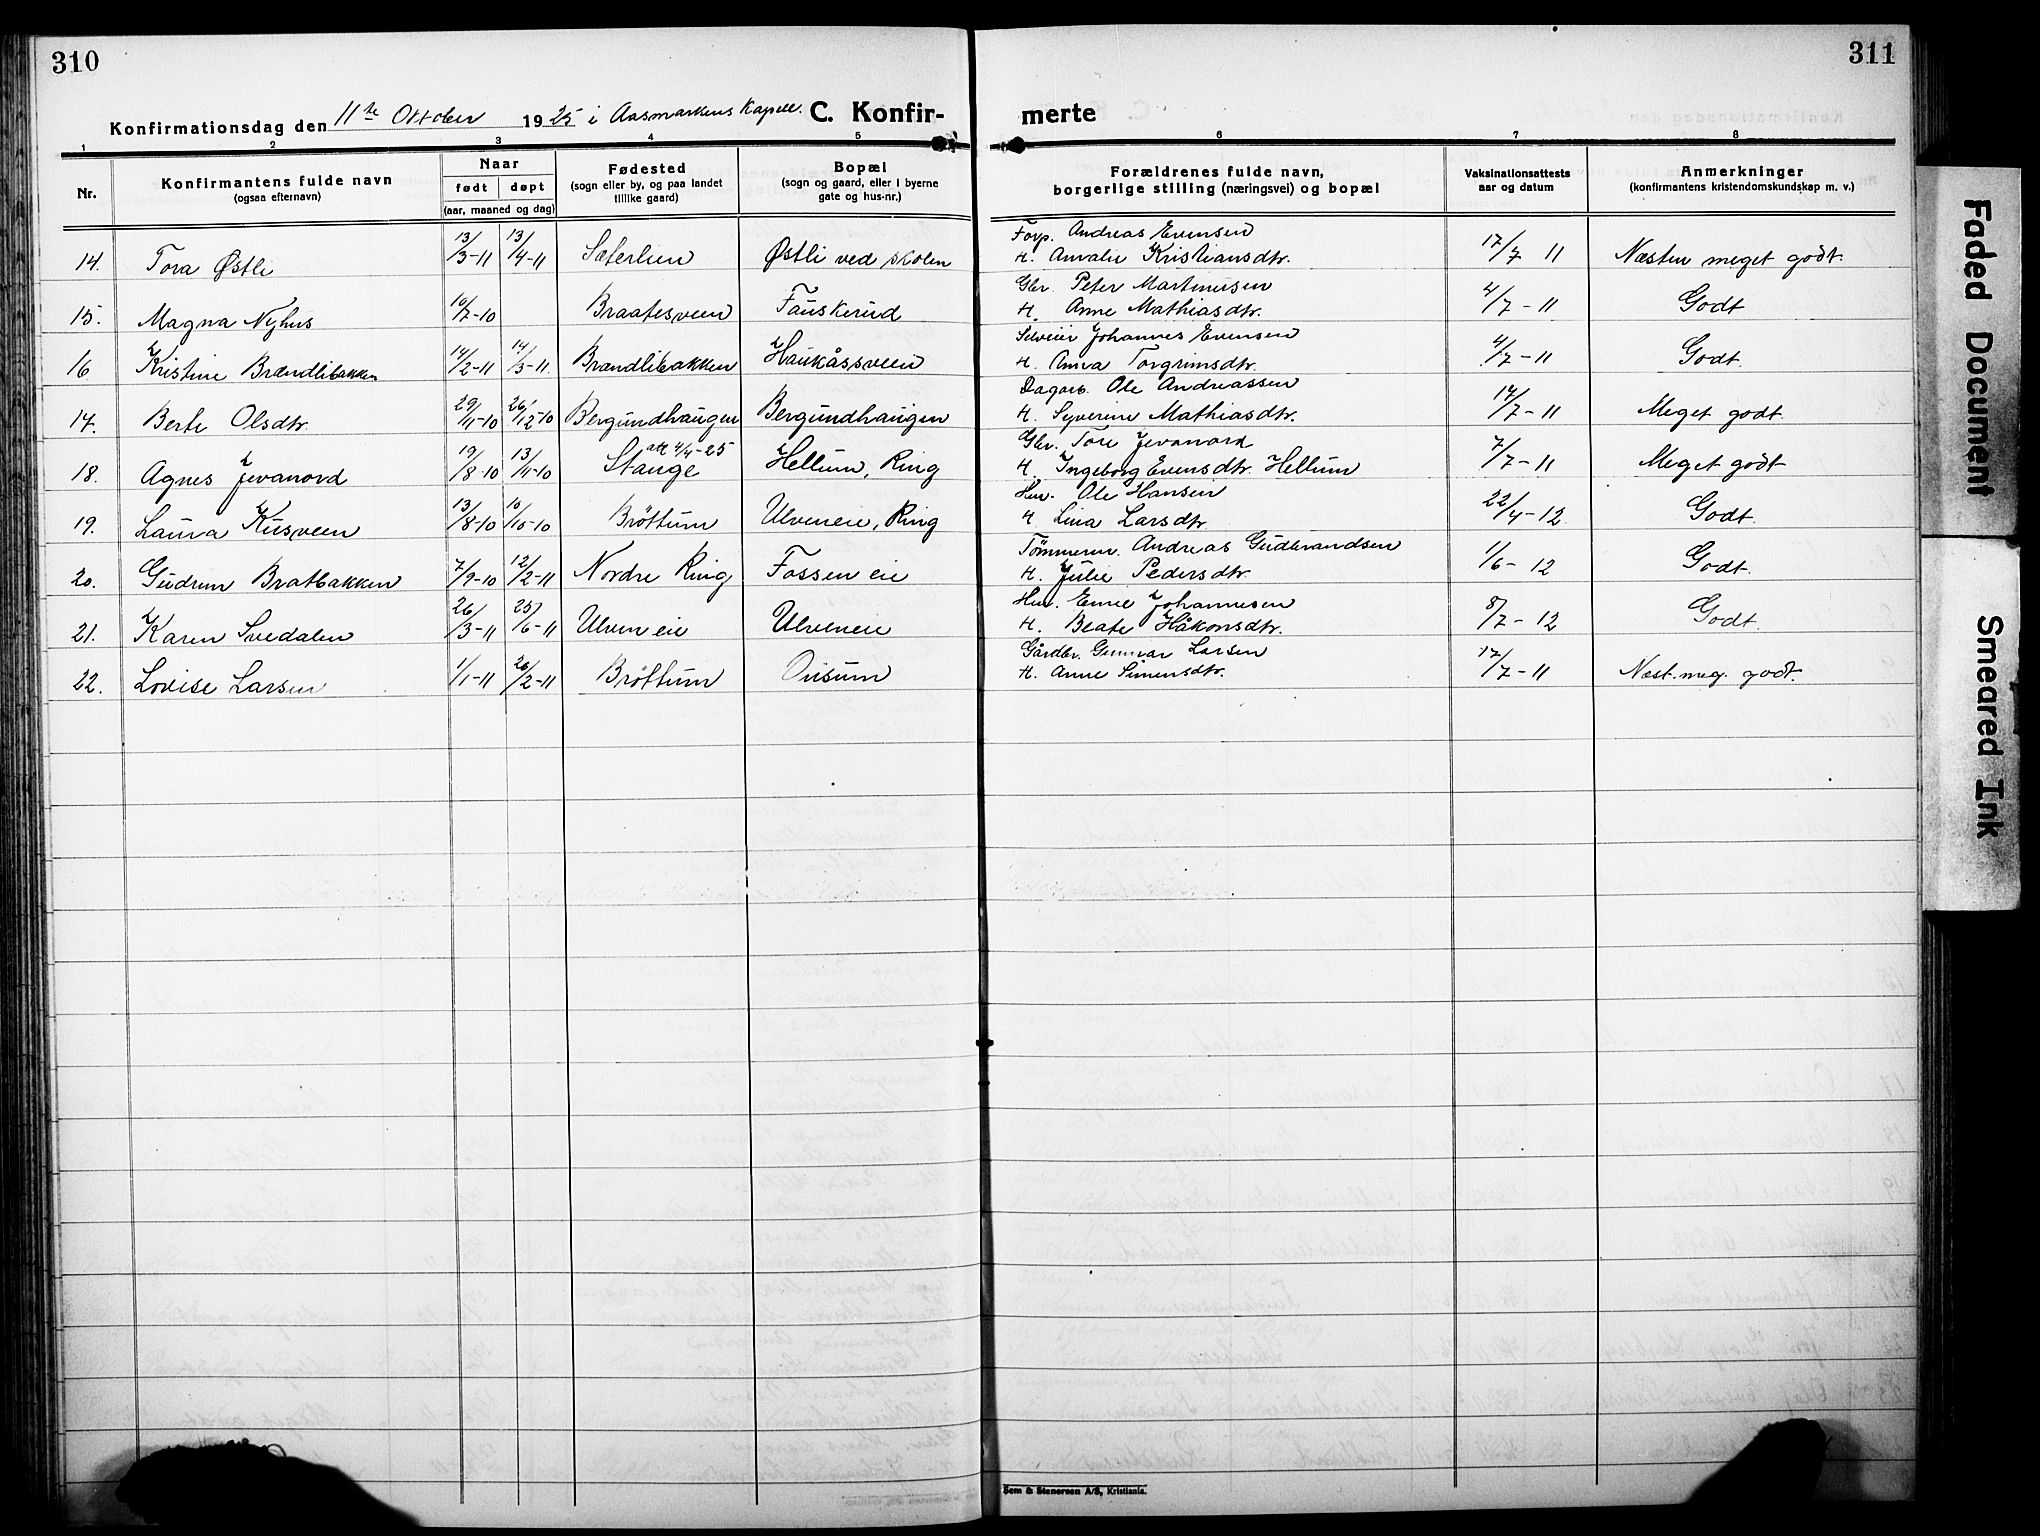 310
311
Konfirmationsdag den 11te Oktober 1925 i Aasmarkens Kapell. C. Konfir-
merte
1 2 3 4 5 6 7 8
Nr.
Konfirmantens fulde navn
(ogsaa efternavn)
Naar
født døpt
(aar, maaned og dag)
Fødested
(sogn eller by, og paa landet
tillike gaard)
Bopæl
(sogn og gaard, eller i byerne
gate og hus-nr.)
Forældrenes fulde navn,
borgerlige stilling (næringsvei) og bopæl
Vaksinationsattests
aar og datum
Anmerkninger
(konfirmantens kristendomskundskap m. v.)
Forp. Andreas Evensen
14. Tora Østli 13/3-11 13/4-11 Sæterlien Østli ved skolen H. Amalie Kristiansdtr. 17/7 11 Næsten meget godt.
Gbr. Peter Martinusen
15. Magna Nyhus 10/7-10 Braatesveen Fauskerud H. Anne Mathiasdtr. 4/7-11 Godt
Selveier Johannes Evensen
16 Kristine Brændlibakken 14/2-11 14/3-11. Brændlibakken Haukåssveen H. Anna Torgrimsdtr. 4/7-11 Godt.
Dagarb. Ole Andreassen
17. Berte Olsdtr. 29/11-10 26/12-10 Bergundhaugen Bergundhaugen H. Syverine Mathiasdtr. 17/7-11 Meget godt.
att 4/4-25
Gbr. Tore Jevanord
18. Agnes Jevanord 19/8-10 13/11-10 Stange Hellum, Ring H. Ingeborg Evensdtr. Hellum 7/7-11 Meget godt
Hm. Ole Hansen
19. Laura Kusveen 13/8-10 10/10-10 Brøttum Ulveneie, Ring H Lina Larsdtr. 22/4-12. Godt.
Tømmerm. Andreas Gudbrandsen
20. Gudrun Bratbakken 7/9-10 12/2-11 Nordre Ring Fossen eie H. Julie Pedersdtr. 1/6-12 Godt.
Hm. Emil Johannesen
21. Karen Svedalen 26/3-11 25/6-11 Ulven eie Ulveneie H. Beate Håkonsdtr. 8/7-12 Godt.
Gårdbr. Gunnar Larsen
22. Lovise Larsen 1/1-11 26/2-11 Brøttum Ousum H. Anne Simensdtr. 17/7-11 Næst. meg. godt.
Sem & Stenersen A/S, Kristiania.
Faded Document
Smeared Ink